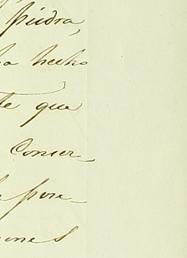 piedra,
ha hecho
te que
Conser-
pora-
ones